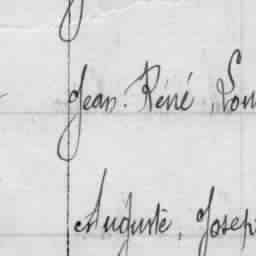 Jean. Réné, Lou
Auguste, Josep